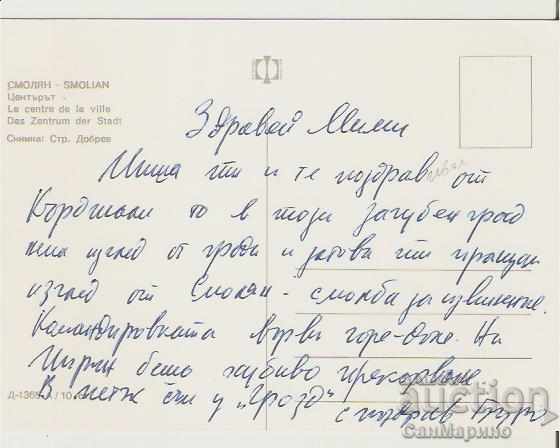 СМОЛЯН - SMOLIAN
Центърът -
Le centre de la ville
Das Zentrum der Stadt
Снимка: Стр. Добрев
Здравей Мими
Пиша ти и те поздравявам от
Кърджали но в този загубен град
няма изглед от града и затова ти пращам
изглед от Смолян - молба за извинение.
Командировката върви горе-доле. На
беше хубаво прекарване
В петък сме у "Грозд"
с поздрав
Д-1365-А / 10
auction
СанМарино